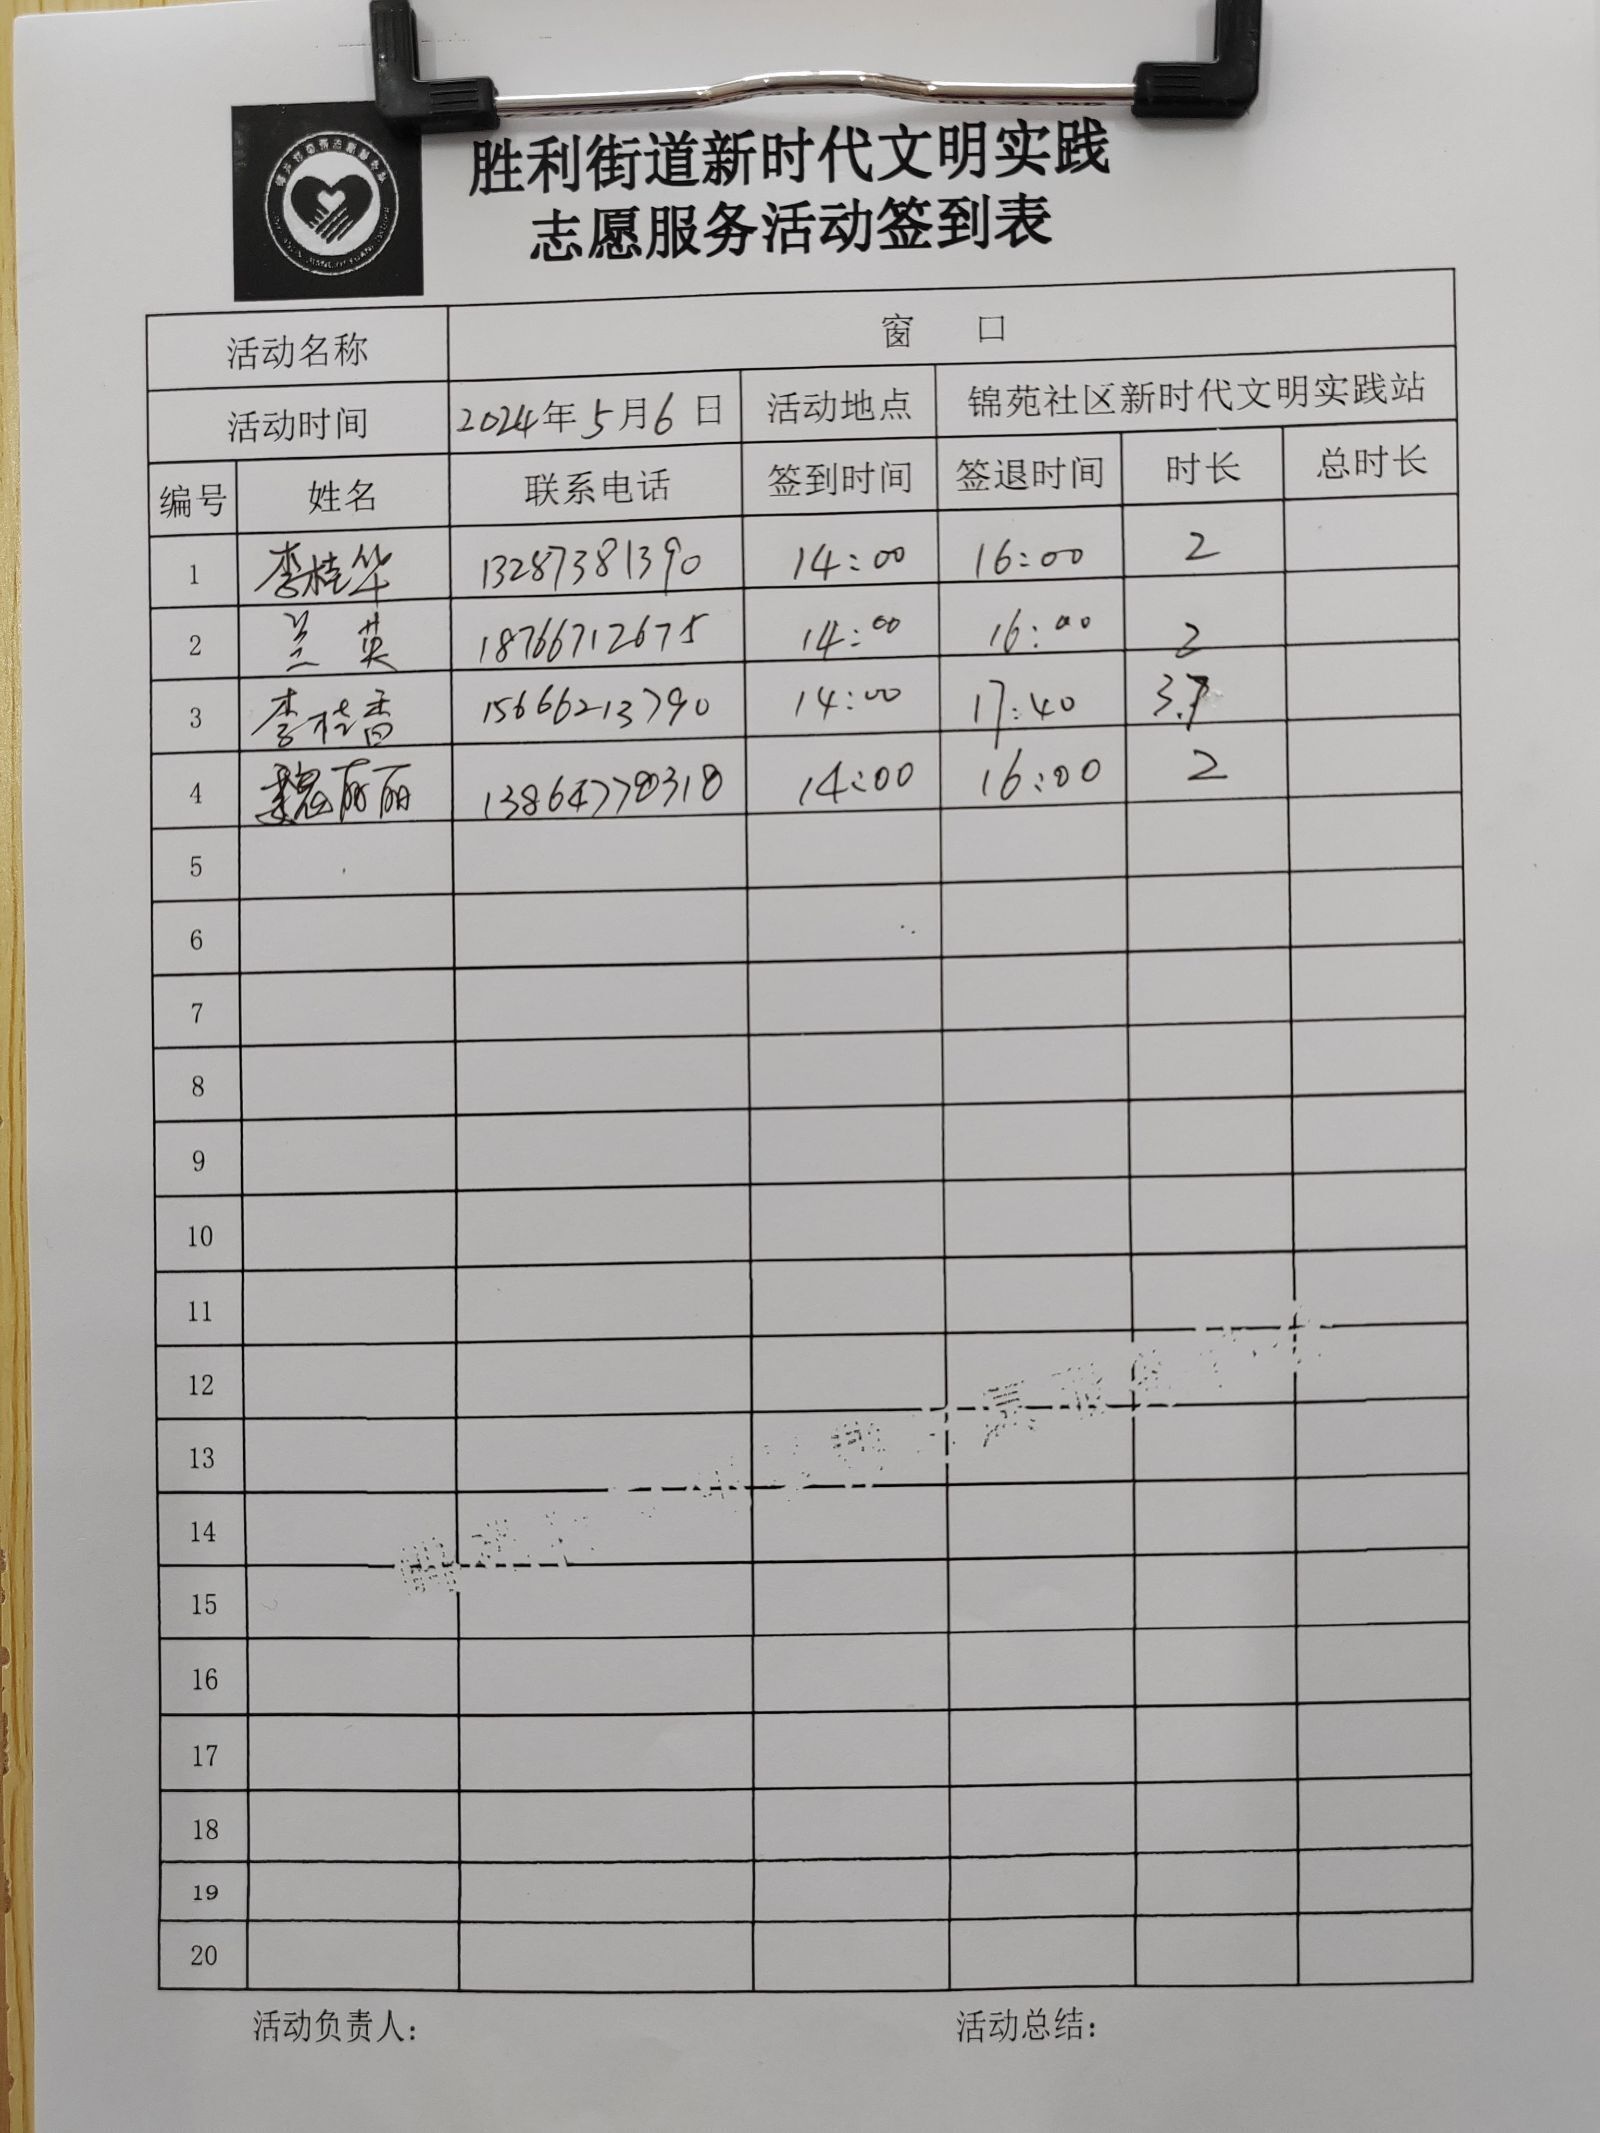 胜利街道新时代文明实践
志愿服务活动签到表
活动名称 窗 口
活动时间 2024年5月6日 活动地点 锦苑社区新时代文明实践站
编号 姓名 联系电话 签到时间 签退时间 时长 总时长
1 李桂华 13287381390 14:00 16:00 2
2 兰英 18766712675 14:00 16:00 2
3 李桂香 15666213790 14:00 17:40 3.7
4 魏丽丽 13864778318 14:00 16:00 2
5
6
7
8
9
10
11
12
13
14
15
16
17
18
19
20
活动负责人: 活动总结: